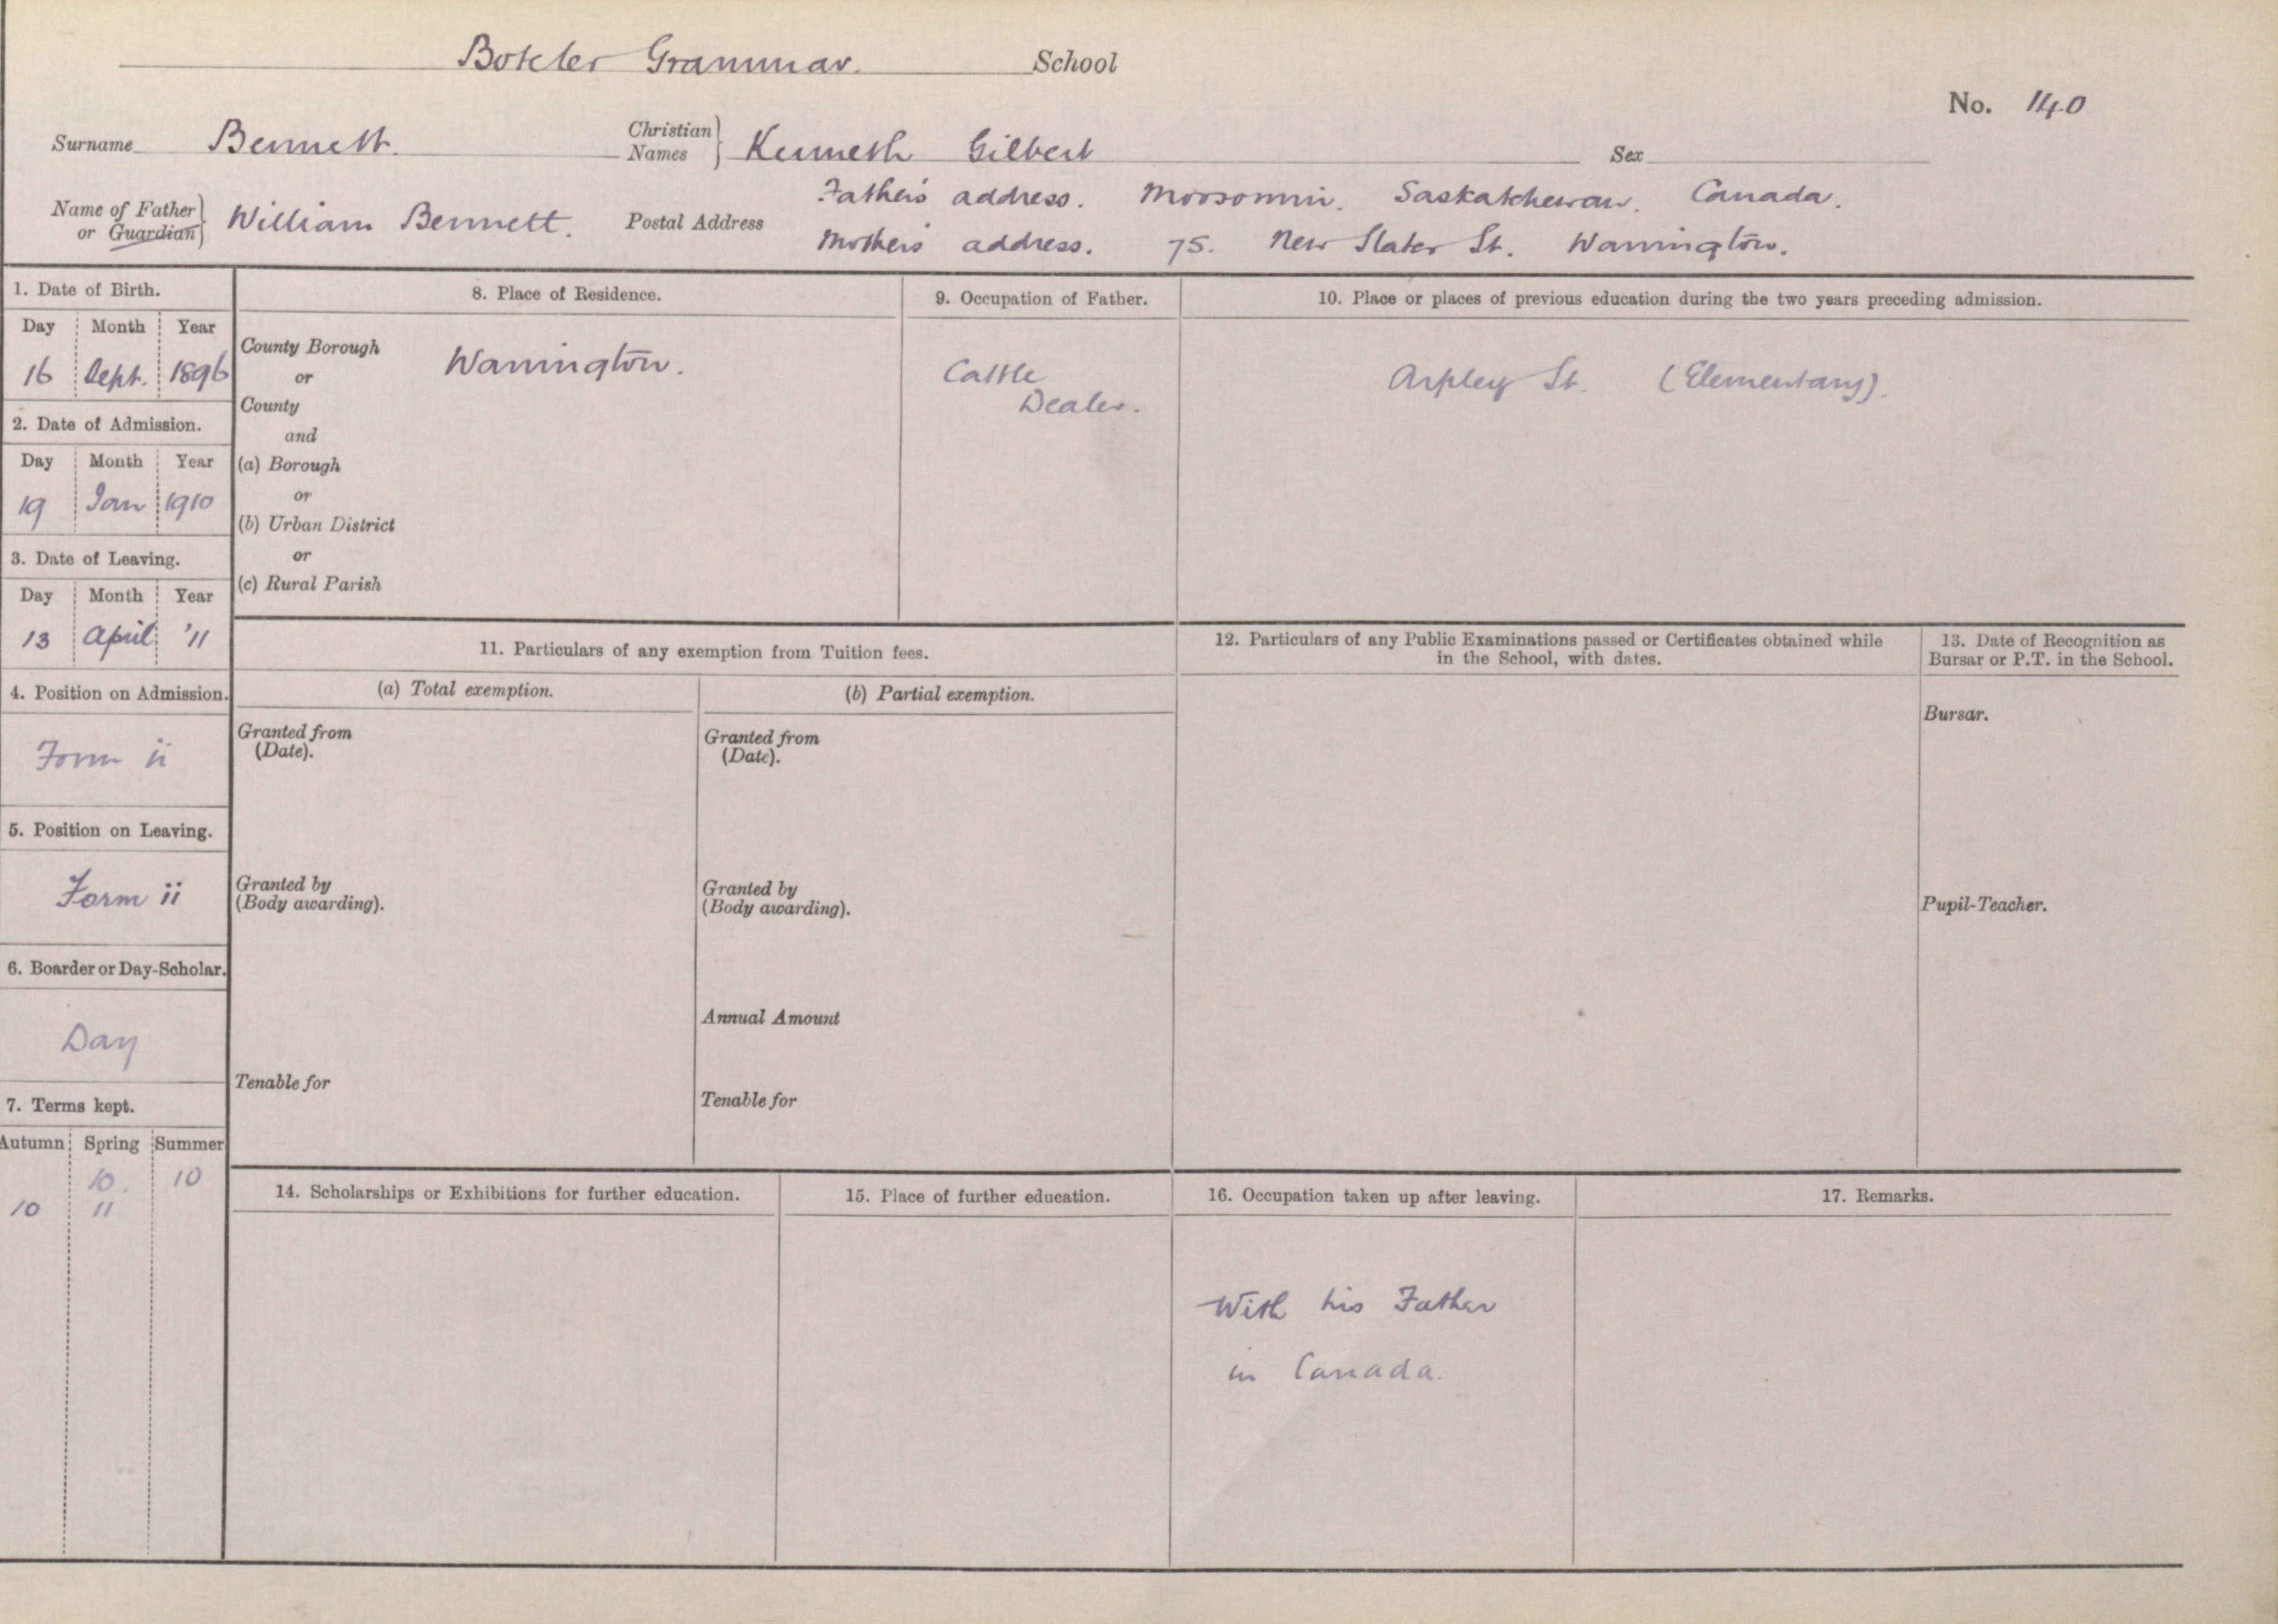 Boteler Grammar. School
No. 140
Surname Bennett. Christian Names Kenneth Gilbert Sex
Name of Father or Guardian William Bennett. Postal Address Father's address. Moosomin. Saskatchewan. Canada.
Mother's address. 75. New Slater St. Warrington.
1. Date of Birth.
Day Month Year
16 Sept. 1896
2. Date of Admission.
Day Month Year
19 Jan 1910
3. Date of Leaving.
Day Month Year
13 April '11
4. Position on Admission.
Form ii
5. Position on Leaving.
Form ii
6. Boarder or Day-Scholar.
Day
7. Terms kept.
Autumn Spring Summer
10. 10
10 11
8. Place of Residence.
County Borough Warrington.
or
County
and
(a) Borough
or
(b) Urban District
or
(c) Rural Parish
9. Occupation of Father.
Cattle
Dealer.
10. Place or places of previous education during the two years preceding admission.
Arpley St. (Elementary).
11. Particulars of any exemption from Tuition fees.
(a) Total exemption.
Granted from
(Date).
Granted by
(Body awarding).
Tenable for
(b) Partial exemption.
Granted from
(Date).
Granted by
(Body awarding).
Annual Amount
Tenable for
12. Particulars of any Public Examinations passed or Certificates obtained while
in the School, with dates.
13. Date of Recognition as
Bursar or P.T. in the School.
Bursar.
Pupil-Teacher.
14. Scholarships or Exhibitions for further education.
15. Place of further education.
16. Occupation taken up after leaving.
With his Father
in Canada.
17. Remarks.